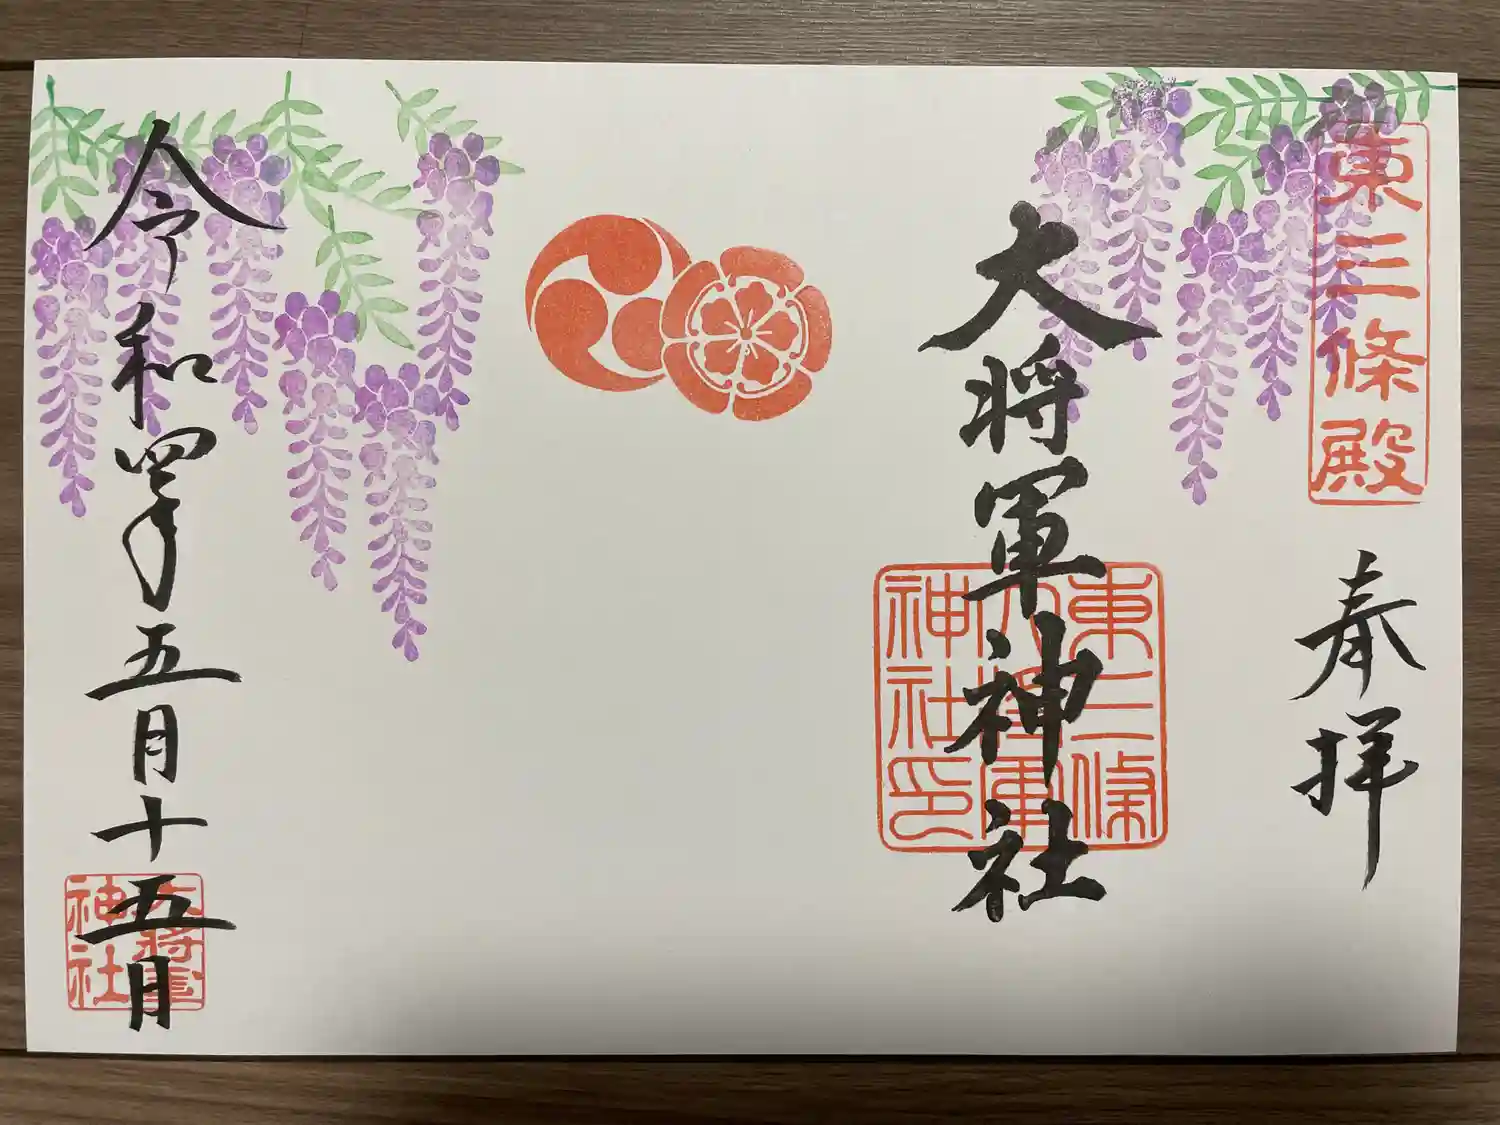 東三條殿
奉拝
大将軍神社
東三條
大将軍
神社印
令和四年五月十五日
大将軍
神社